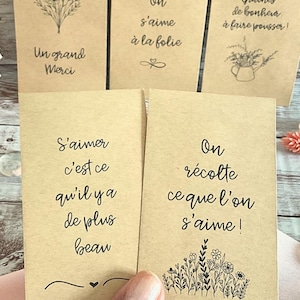 Un grand
Merci
On
s'aime
à la folie
de bonheur
à faire pousser !
S'aimer
c'est ce
qu'il y a
de plus
beau
On
récolte
ce que l'on
s'aime !